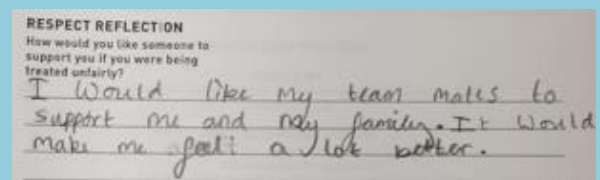 RESPECT REFLECTION
How would you like someone to
support you if you were being
treated unfairly?
I would like my team mates to
support me and my family. It would
make me feel a lot better.